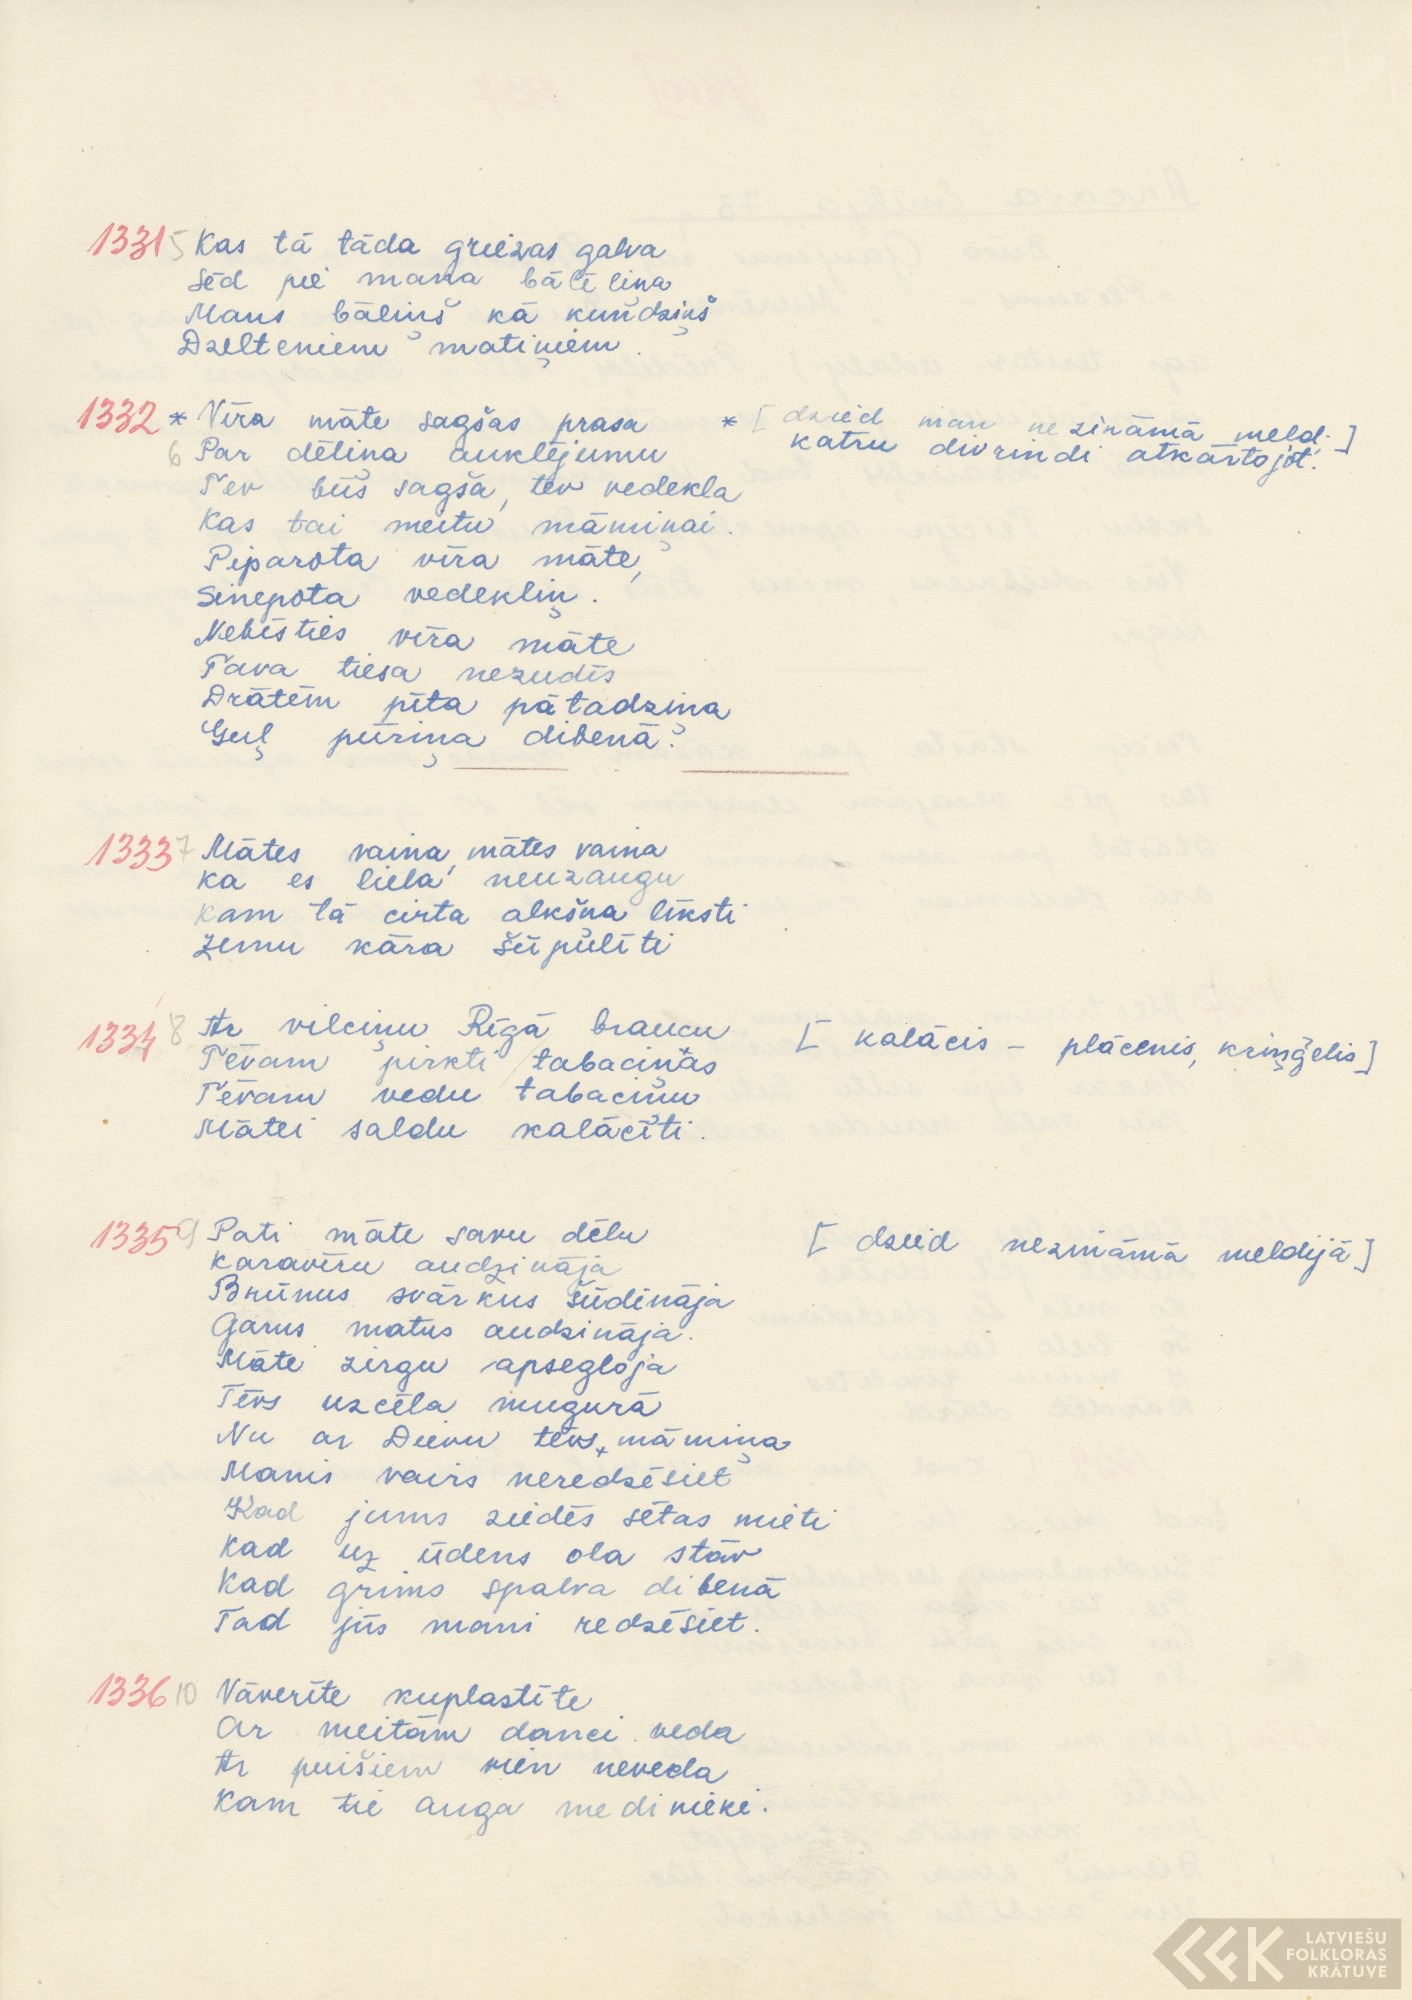 1331 5 Kas tā tāda greizas galva
Sēd pie mana bālēliņa
Mans bāliņš kā kundziņš
Dzelteniem matiņiem.
1332 * Vīra māte sagšas prasa * [dzied man nezināmā meld.]
6 Par dēliņa auklējumu katru divrindi atkārtojot.
Tev būs sagša, tev vedekla
Kas tai meitu māmiņai.
Piparota vīra māte,
Sinepota vedekliņ.
Nebīsties vīra māte
Tava tiesa nezudīs
Drātēm pīta pātadziņa
Guļ pūriņa dibenā.
1333 7 Mātes vaina, mātes vaina
Ka es liela neuzaugu
Kam tā cirta alkšņa līksti
Zemu kāra šūpulīti
1334 8 Ar vilciņu Rīgā braucu [kalācis – plācenis, kriņģelis]
Tēvam pirkti tabaciņas
Tēvam vedu tabaciņu
Mātei saldu kalācīti.
1335 9 Pati māte savu dēlu [dzied nezināmā meldijā]
Karavīru audzināja
Brūnus svārkus šūdināja
Garus matus audzināja.
Māte zirgu apsegloja
Tēvs uzcēla mugurā
Nu ar Dievu tēvs, māmiņa
Manis vairs neredzēsiet
Kad jums ziedēs sētas mieti
Kad uz ūdens ola stāv
Kad grims spalva dibenā
Tad jūs mani redzēsiet.
1336 10 Vāverīte kuplastīte
Ar meitām danci veda
Ar puišiem vien neveda
Kam tie auga medinieki.
LATVIEŠU
FOLKLORAS
KRĀTUVE